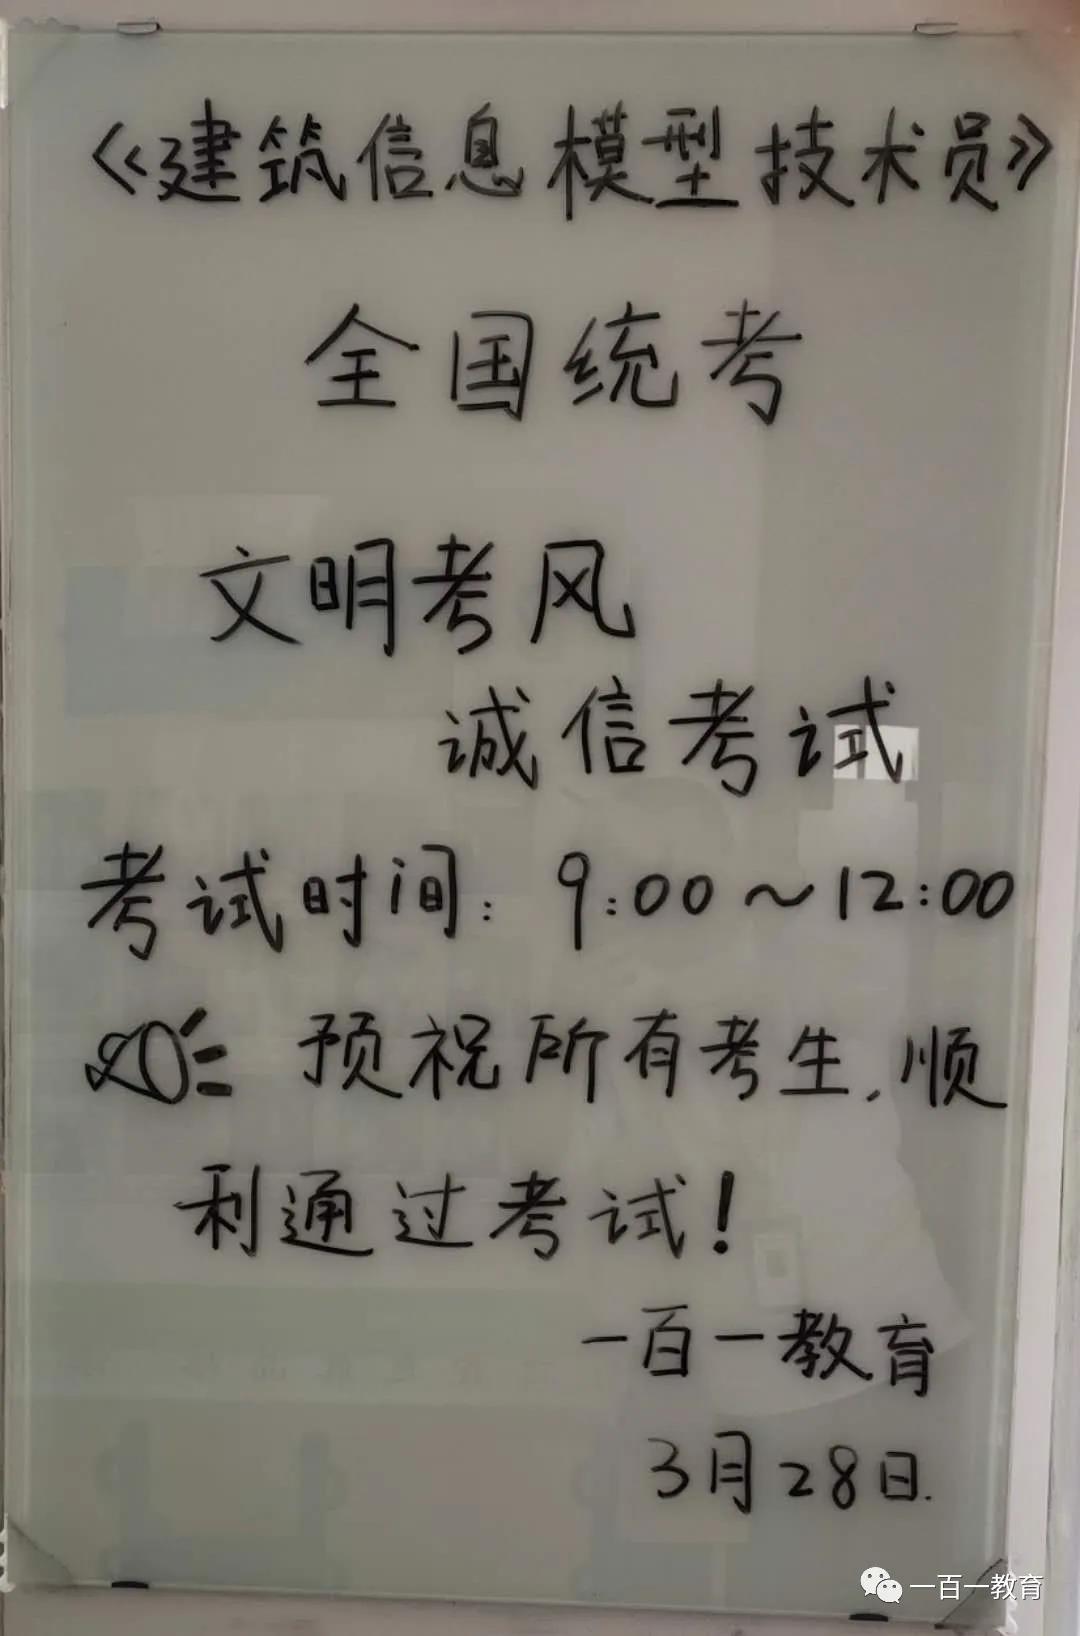 《建筑信息模型技术员》
全国统考
文明考风
诚信考试
考试时间：9:00～12:00
预祝所有考生，顺
利通过考试！
一百一教育
3月28日.
一百一教育